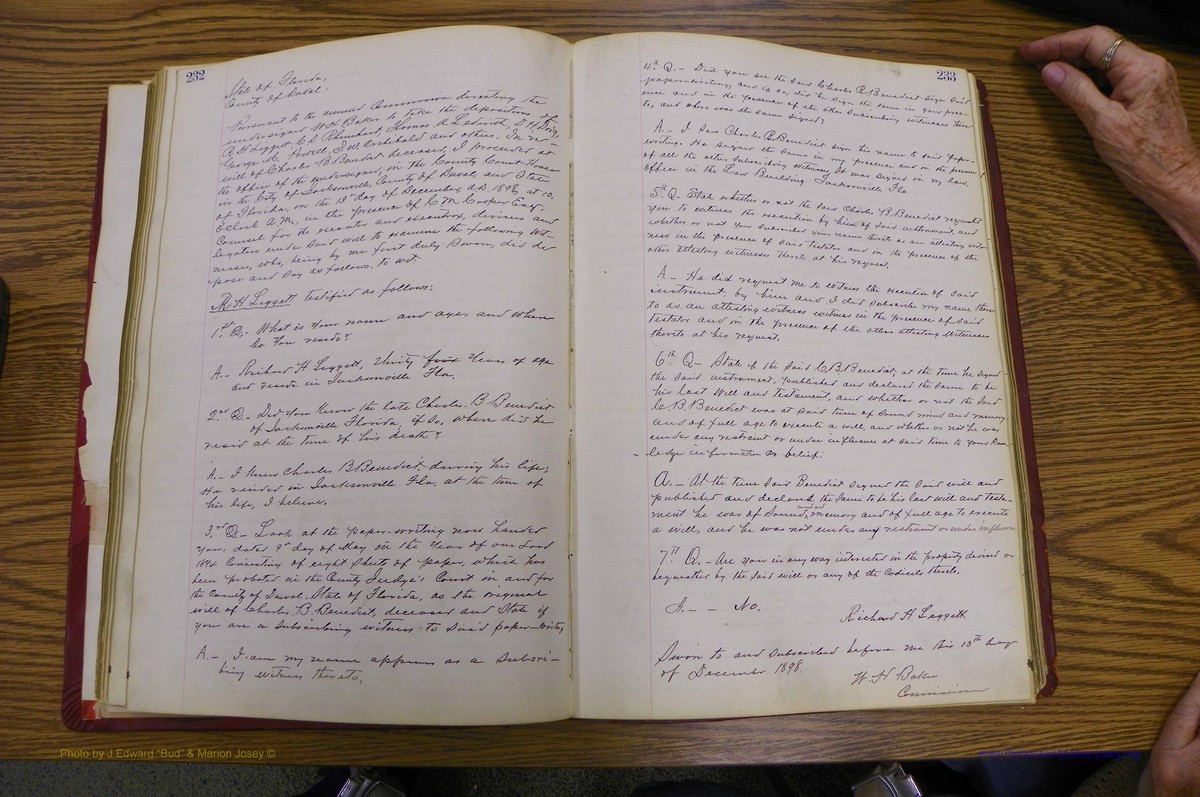 232
State of Florida,
County of Duval.
Pursuant to the annexed Commission directing the
undersigned W. H. Baker to take the deposition of
R H Leggett C D Rhinehart, Thomas A Ledwith,
George M. J. W. Archibald and others. In re-
will of Charles B Benedict deceased, I proceeded at
the office of the undersigned, in the County Court House
in the City of Jacksonville County of Duval, and State
of Florida, on the 13th day of December A.D 1898, at 10.
O'clock A.M., in the presence of C M Cooper Esqr.
Counsel for the executor and executrix, devisees and
legatees under said will to examine the following wit-
nesses, who, being by me first duly sworn, did de
pose and say as follows, to wit
R. H Leggett testified as follows:
1st Q. What is your name and ages and where
do you reside?
A.- Richard H Leggett, thirty four years of age
and reside in Jacksonville Fla.
2nd Q. Did you know the late Charles. B Benedict
of Jacksonville Florida, if So, where did he
resid at the time of his death?
A.- I knew Charles B Benedict, during his life;
He resided in Jacksonville Fla, at the time of
his life, I believe.
3rd Q- Look at the paper-writing now handed
you, dated 9th day of May in the year of our Lord
1894 Consisting of eight Sheets of paper, which has
been probated in the County Judge's Court in and for
the County of Duval, State of Florida, as the original
will of Charles. B. Benedict, deceased and State if
you are a subscribing witness to said paper-writing
A.- I am my name appears as a subscri-
bing witness thereto.
233
4th Q.- Did you see the said Charles B Benedict sign said
paper-writing, and if so, did he sign the same in your pres-
ence and in the presence of the other subscribing witnesses there
to, and where was the same signed?
A.- I saw Charles B Benedict sign his name to said paper-
writing. He signed the same in my presence and in the presence of
of all the other subscribing witness. It was signed in my law
office in the Law Building Jacksonville Fla.
5th Q- State whether or not the said Charles B. Benedict requested
you to witness the execution by him of said instrument, and
whether or not you subscribed your name thereto as an attesting wit-
ness in the presence of said testator and in the presence of the
other attesting witnesses thereto at his request.
A- He did request me to witness the execution of said
instrument; by him and I did subscribe my name there
to as an attesting witness witness in the presence of said
testator and in the presence of the other attesting witnesses
thereto at his request.
6th Q- State if the said C B Benedict, at the time he signed
the said instrument, published and declared the same to be
his last will and testament, and whether or not the said
C B. Benedict was at said time of sound mind and memory
and of full age to execute a will, and whether or not he was
under any restraint or undue influence at said time to your know-
ledge information or belief.
A.- At the time said Benedict signed the said will and
published and declared the same to be his last will and testa-
ment he was of sound mind and memory and of full age to execute
a will, and he was not under any restraint or undue influence
7th Q.- Are you in any way interested in the property devised or
bequeathed by the said will or any of the codicils thereto.
A.- - No.
Richard H Leggett
Sworn to and subscribed before me this 13th day
of December 1898.
W. H Baker
Commissioner
Photo by J Edward "Bud" & Marion Josey ©